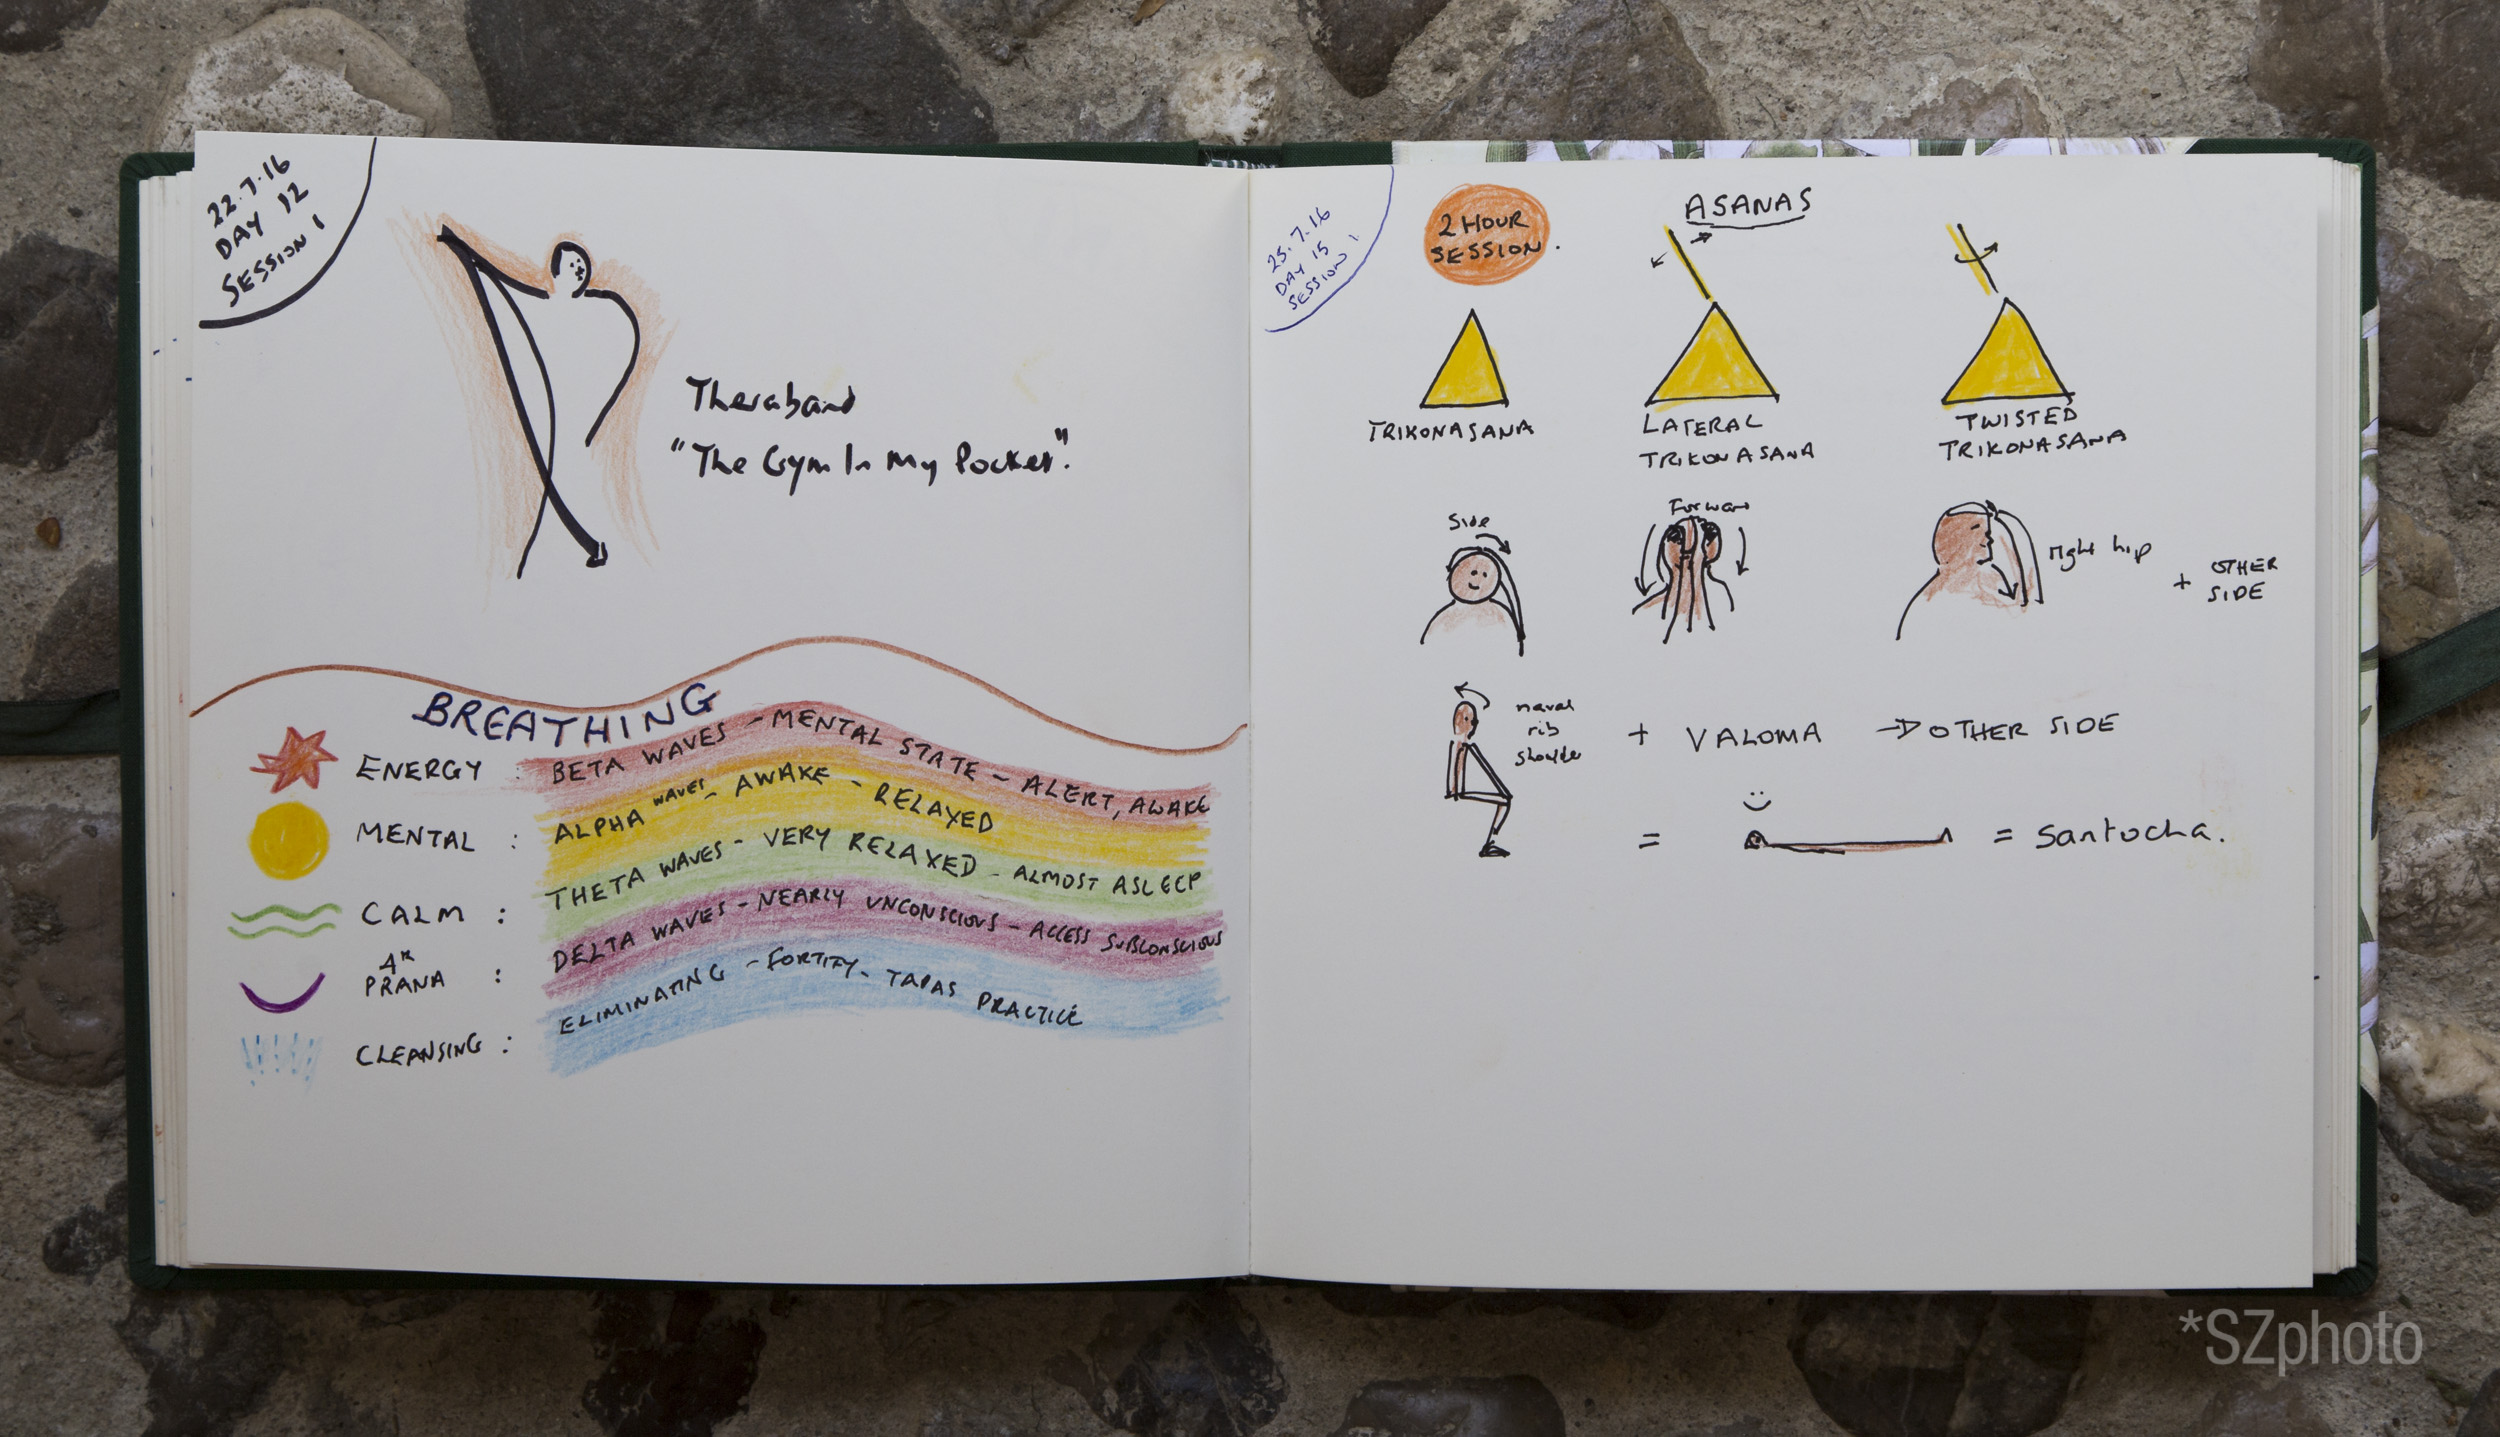 22.7.16
DAY 12
SESSION 1
Theraband
"The Gym In My Pocket".
BREATHING
ENERGY : BETA WAVES - MENTAL STATE - ALERT, AWAKE
MENTAL : ALPHA WAVES - AWAKE - RELAXED
CALM : THETA WAVES - VERY RELAXED - ALMOST ASLEEP
PRANA : DELTA WAVES - NEARLY UNCONSCIOUS - ACCESS SUBCONSCIOUS
CLEANSING : ELIMINATING - FORTIFY - TAPAS PRACTICE
25.7.16
DAY 15
SESSION 1
2 HOUR
SESSION.
ASANAS
TRIKONASANA
LATERAL
TRIKONASANA
TWISTED
TRIKONASANA
Side
Forward
right hip
+ OTHER
SIDE
naval
rib
shoulder
+ VALOMA → OTHER SIDE
= = Santocha.
*SZphoto